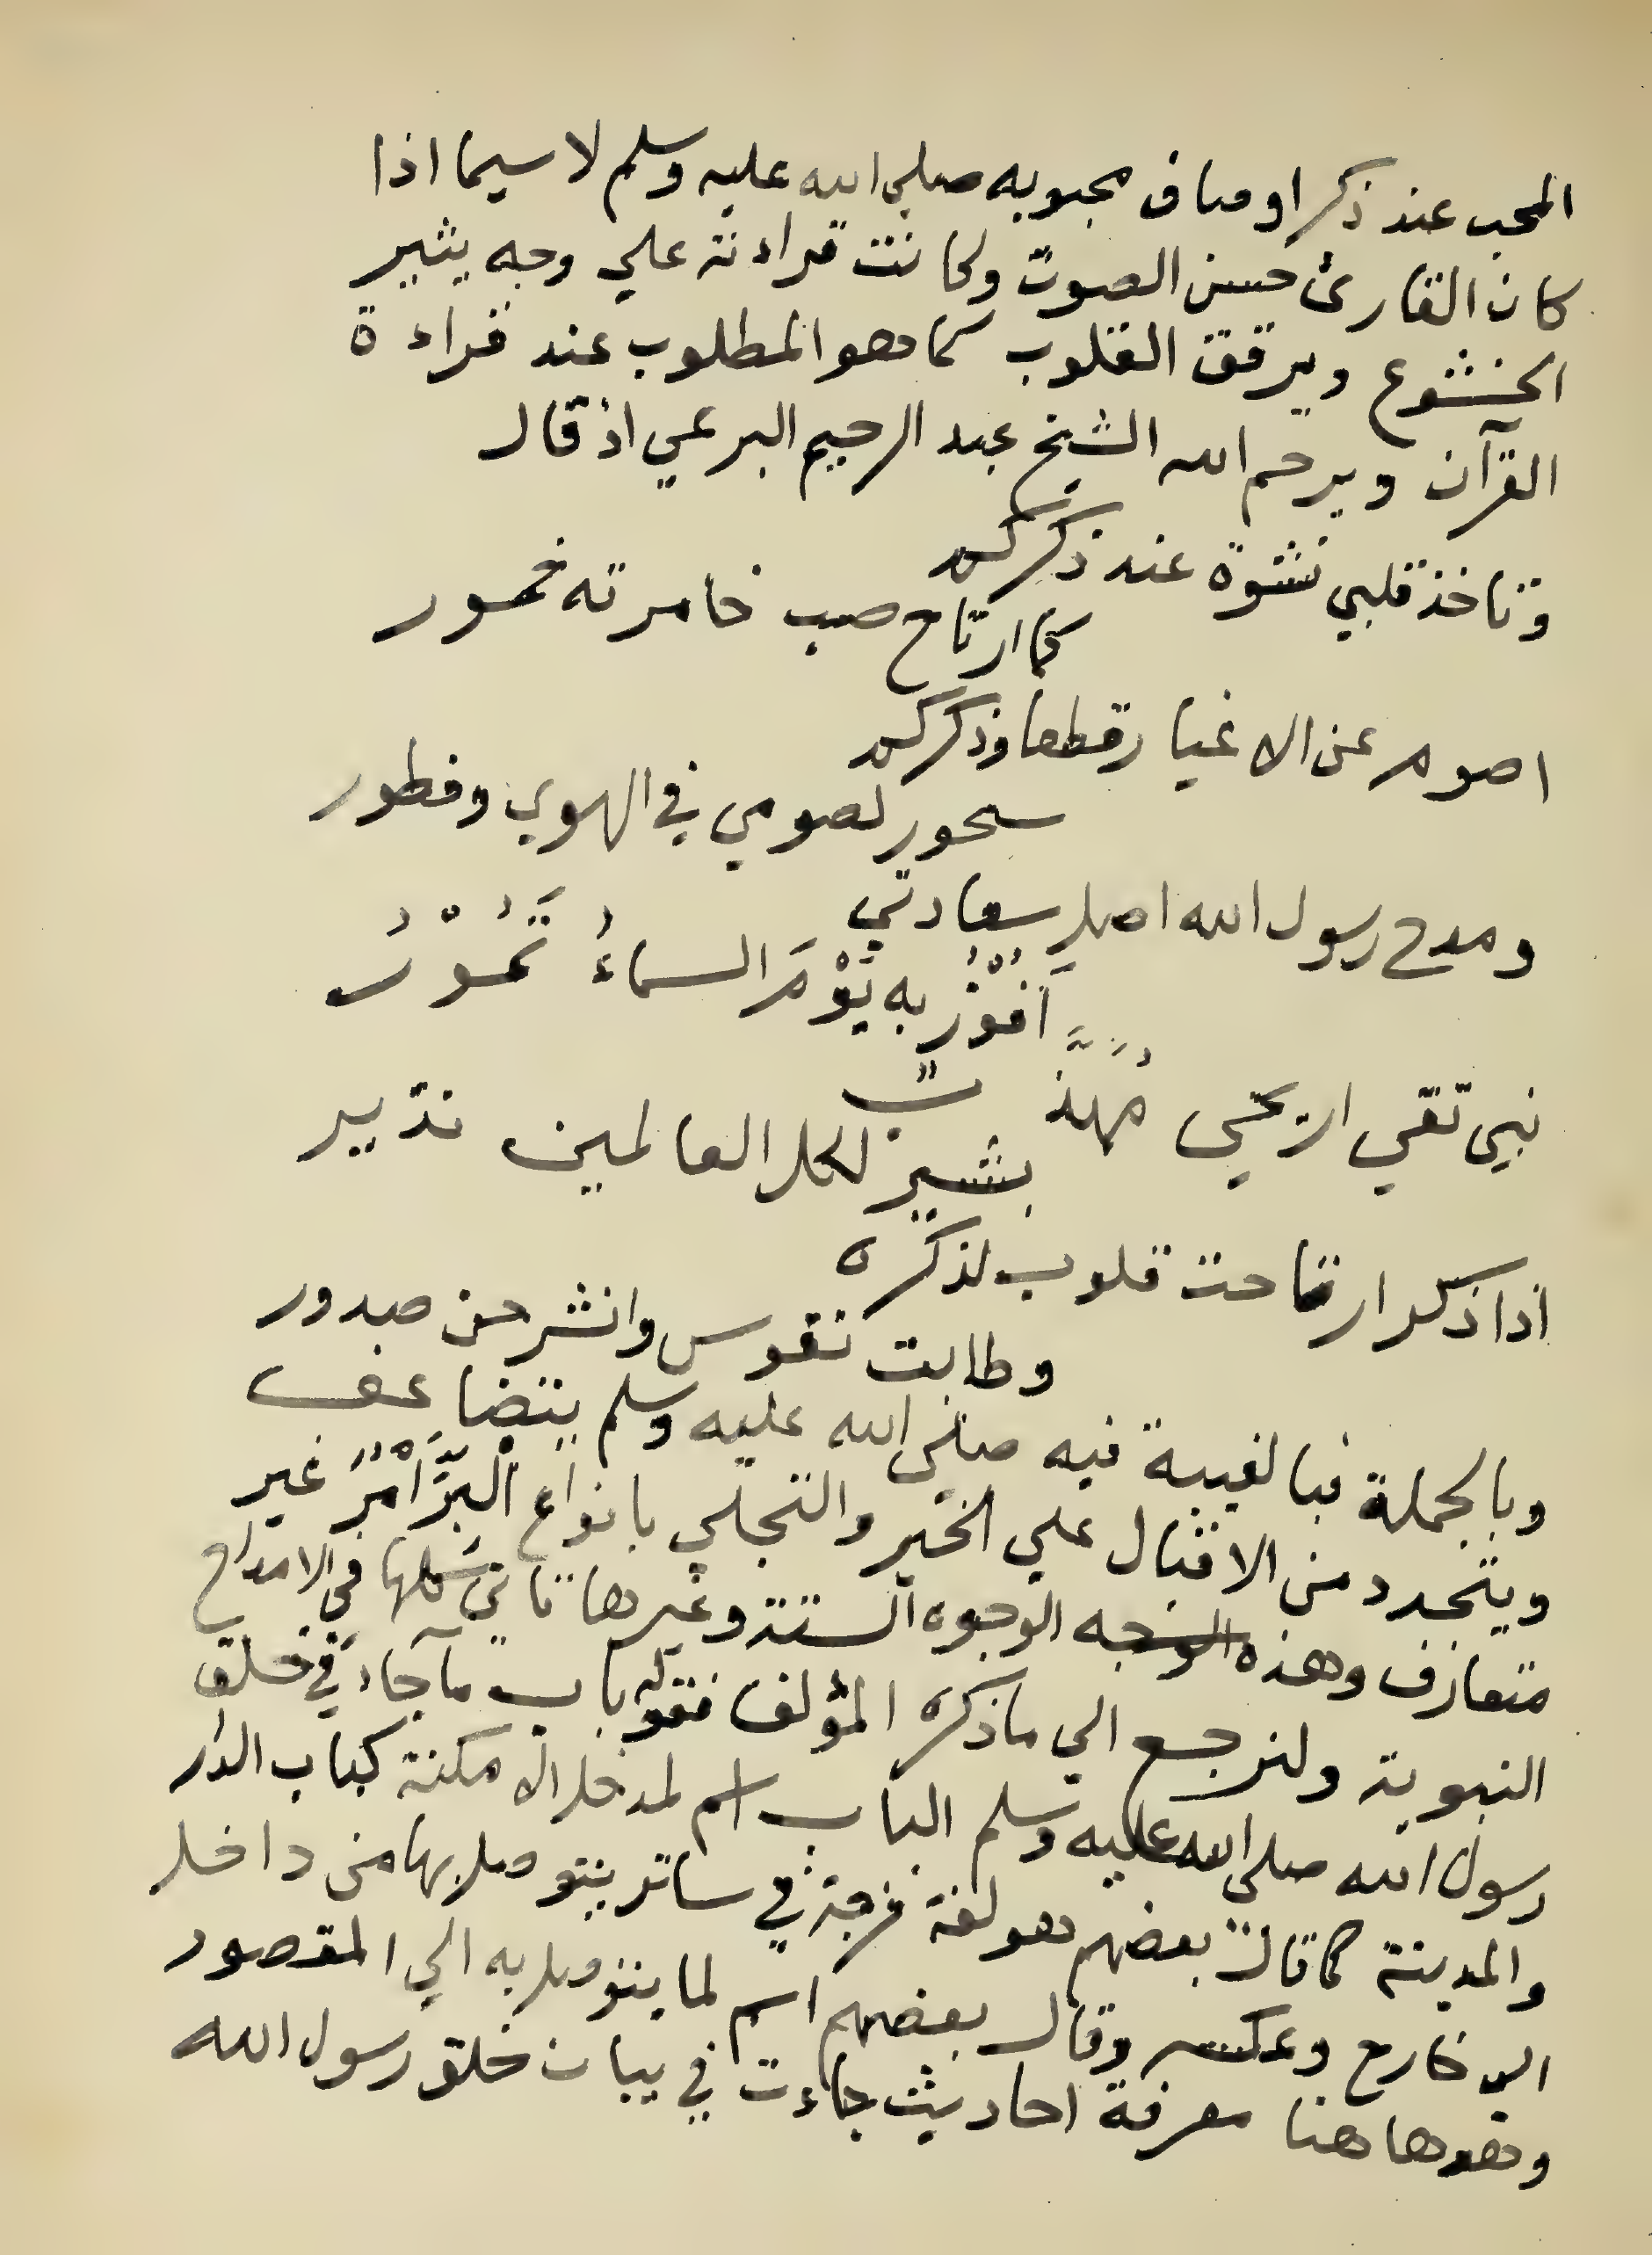 المحب عند ذكر اوصاف محبوبه صلي الله عليه وسلم لا سيما اذا
كان القارئ حسن الصوت وكانت قراءته علي وجه يثير
الخشوع ويرقق القلوب كما هو المطلوب عند قراءة
القرآن ويرحم الله الشيخ عبد الرحيم البرعي اذ قال
وتاخذ قلبي نشوة عند ذكركم
كما ارتاح صب خامرته خمور
اصوم عن الاغيار قطعا وذكركم
سحور لصومي في الهوي وفطور
ومدح رسول الله اصل سعادتي
اَفُوْزُ به يَوْمَ السماءُ تَمُوْرُ
نبي تقي اريحي مُهَذَّبٌ
بشير لكل العالمين نذير
اذا ذكر ارتاحت قلوب لذكره
وطابت نفوس وانشرحن صدور
وبالجملة فبالغيبة فيه صلي الله عليه وسلم يتضاعف
ويتجدد من الاقبال علي الخير والتجلي بانواع البِرَّ اَمْرٌ غير
متعارف وهذه الوجه الوجوه الستة وغيرها تاتي كلها في الامداح
النبوية ولنرجع الي ما ذكره المؤلف فقوله باب ما جاء في خلق
رسول الله صلي الله عليه وسلم الباب اسم لمدخل الامكنة كباب الدار
والمدينة كما قال بعضهم هو لغة فرجة في ساتر يتوصل بها من داخل
الي خارج وعكسه وقال بعضهم اسم لما يتوصل به الي المقصود
وهو هاهنا معرفة احاديث جاءت في بيان خلق رسول الله